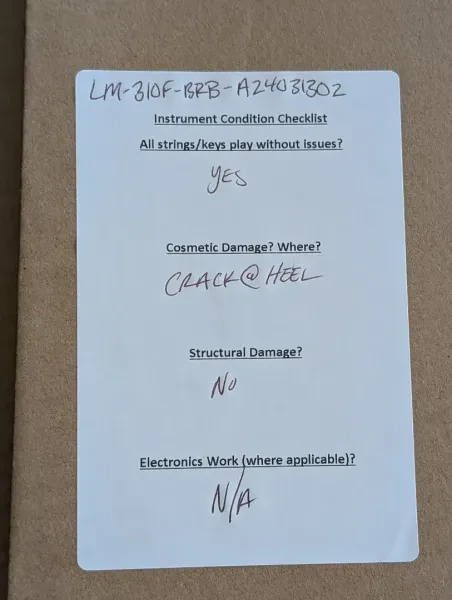 LM-310F-BRB-A24031302
Instrument Condition Checklist
All strings/keys play without issues?
YES
Cosmetic Damage? Where?
CRACK@HEEL
Structural Damage?
No
Electronics Work (where applicable)?
N/A